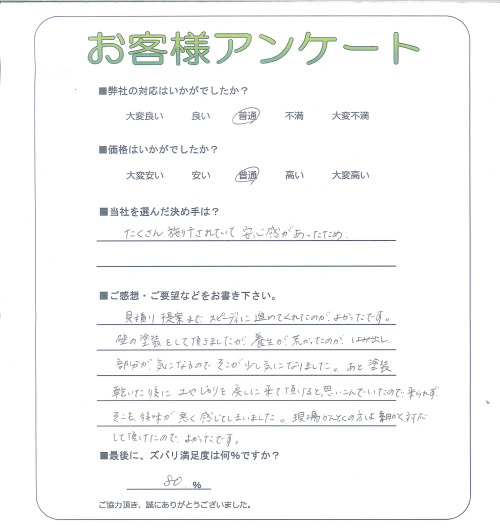 お客様アンケート
■弊社の対応はいかがでしたか？
大変良い 良い 普通 不満 大変不満
■価格はいかがでしたか？
大変安い 安い 普通 高い 大変高い
■当社を選んだ決め手は？
たくさん施行されていて安心感があったため
■ご感想・ご要望などをお書き下さい。
見積り提案まで スピーディに進めてくれたのが、よかったです。
壁の塗装をして頂きましたが、養生が荒かったのが、はみ出し
部分が気になるので そこが少し気になりました。あと塗装
乾いた後に を戻しに来て頂けると思いこんでいたので、来られず
そこも後味が悪く感じてしまいました。現場かんとくの方は細かく対応
して頂けたので、よかったです。
■最後に、ズバリ満足度は何%ですか？
80 %
ご協力頂き、誠にありがとうございました。